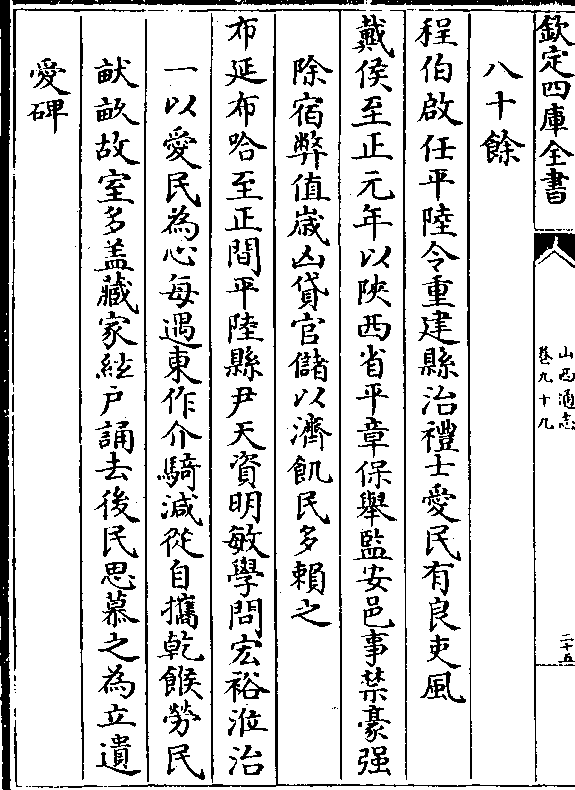 欽定四庫全書
山西通志
卷九十九
二十五
八十餘
程伯啟任平陸令重建縣治禮士愛民有良吏風
戴侯至正元年以陜西省平章保舉監安邑事禁豪强
除宿弊值嵗凶貸官儲以濟飢民多賴之
布延布哈至正間平陸縣尹天資明敏學問宏裕涖治
一以愛民為心每遇東作介騎減從自攜乾餱勞民
畎畝故室多盖藏家絃户誦去後民思慕之為立遺
愛碑